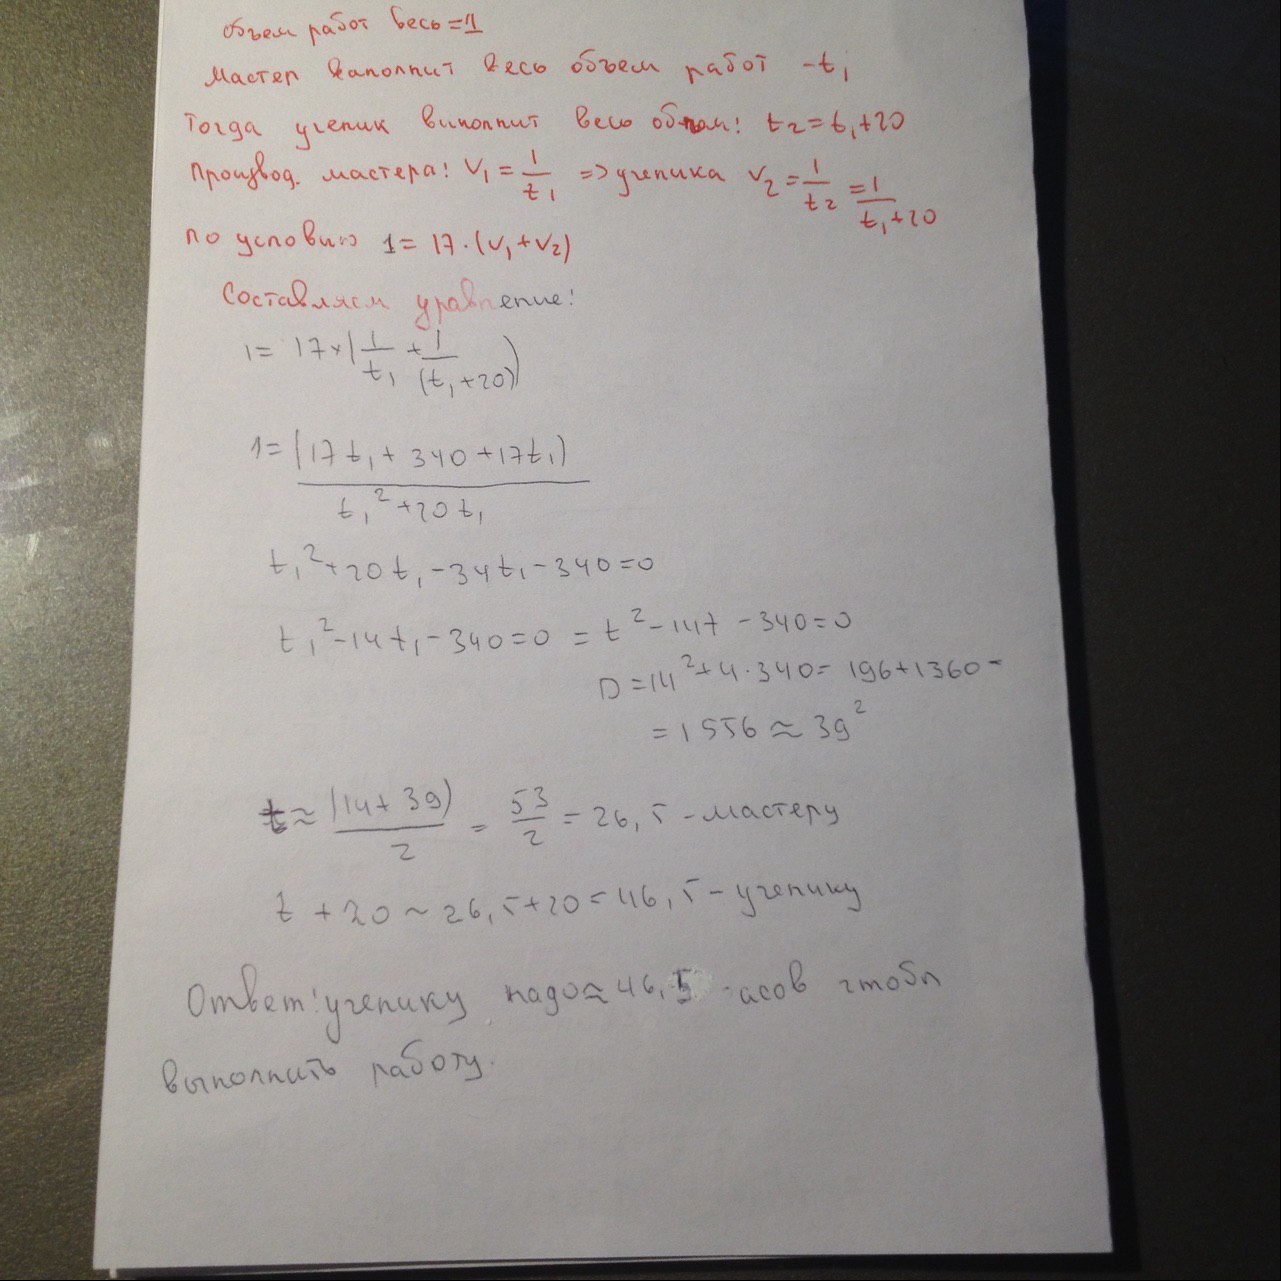 Объем работ весь = 1
Мастер выполнит весь объем работ - t₁
Тогда ученик выполнит весь объем: t₂ = t₁ + 20
Произвед. мастера: V₁ = 1/t₁ => ученика V₂ = 1/t₂ = 1/(t₁+20)
по условию 1 = 17·(V₁+V₂)
Составляем уравнение:
1 = 17×(1/t₁ + 1/(t₁+20))
1 = (17t₁ + 340 + 17t₁)/(t₁² + 20t₁)
t₁² + 20t₁ - 34t₁ - 340 = 0
t₁² - 14t₁ - 340 = 0 = t² - 14t - 340 = 0
D = 14² + 4·340 = 196 + 1360 =
= 1556 ≈ 39²
t ≈ (14 + 39)/2 = 53/2 = 26,5 - мастеру
t + 20 ~ 26,5 + 20 = 46,5 - ученику
Ответ: ученику надо ≈ 46,5 часов чтобы
выполнить работу.